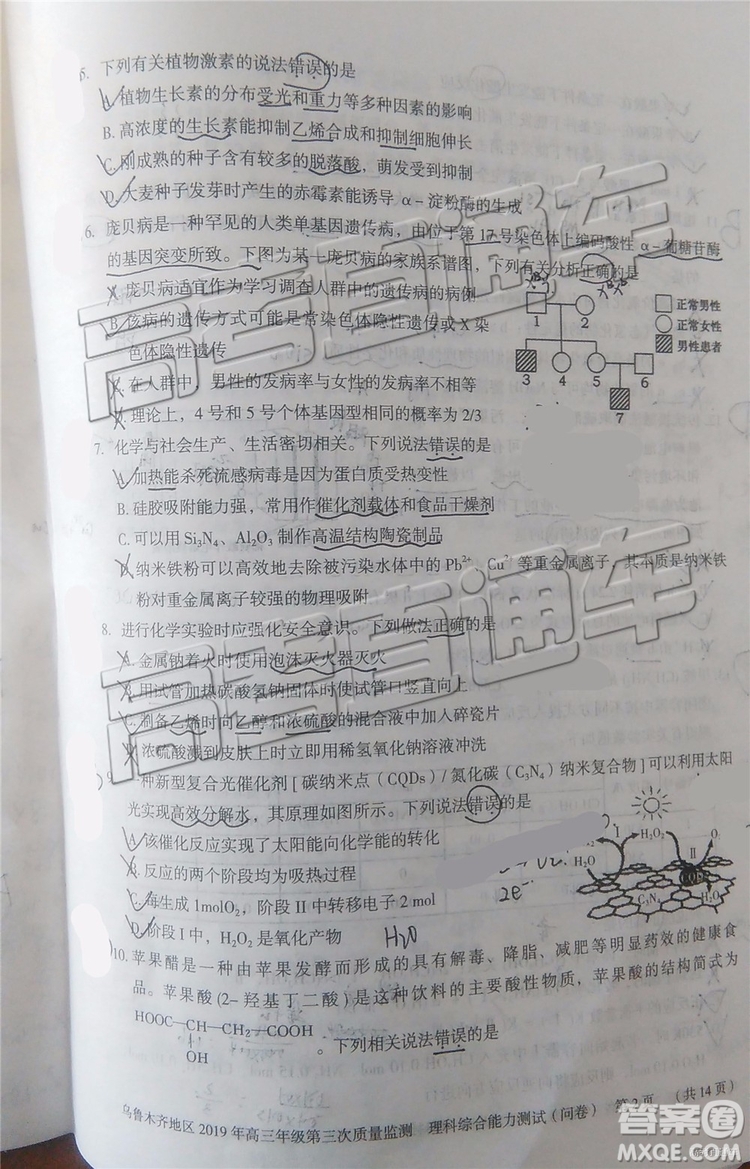 5. 下列有关植物激素的说法错误的是
A. 植物生长素的分布受光和重力等多种因素的影响
B. 高浓度的生长素能抑制乙烯合成和抑制细胞伸长
C. 刚成熟的种子含有较多的脱落酸，萌发受到抑制
D. 大麦种子发芽时产生的赤霉素能诱导 α-淀粉酶的生成
6. 庞贝病是一种罕见的人类单基因遗传病，由位于第17号染色体上编码酸性 α-葡糖苷酶
的基因突变所致。下图为某一庞贝病的家族系谱图，下列有关分析正确的是
A. 庞贝病适宜作为学习调查人群中的遗传病的病例
B. 该病的遗传方式可能是常染色体隐性遗传或X染
色体隐性遗传
C. 在人群中，男性的发病率与女性的发病率不相等
D. 理论上，4号和5号个体基因型相同的概率为2/3
正常男性
正常女性
男性患者
1 2
3 4 5 6
7
7. 化学与社会生产、生活密切相关。下列说法错误的是
A. 加热能杀死流感病毒是因为蛋白质受热变性
B. 硅胶吸附能力强，常用作催化剂载体和食品干燥剂
C. 可以用Si₃N₄、Al₂O₃制作高温结构陶瓷制品
D. 纳米铁粉可以高效地去除被污染水体中的Pb²⁺、Cu²⁺等重金属离子，其本质是纳米铁
粉对重金属离子较强的物理吸附
8. 进行化学实验时应强化安全意识。下列做法正确的是
A. 金属钠着火时使用泡沫灭火器灭火
B. 用试管加热碳酸氢钠固体时使试管口竖直向上
C. 制备乙烯时向乙醇和浓硫酸的混合液中加入碎瓷片
D. 浓硫酸溅到皮肤上时立即用稀氢氧化钠溶液冲洗
9. 一种新型复合光催化剂[碳纳米点（CQDs）/氮化碳（C₃N₄）纳米复合物]可以利用太阳
光实现高效分解水，其原理如图所示。下列说法错误的是
A. 该催化反应实现了太阳能向化学能的转化
B. 反应的两个阶段均为吸热过程
C. 每生成1molO₂，阶段II中转移电子2 mol
D. 阶段I中，H₂O₂是氧化产物
H₂O
2e⁻
I H₂O₂
H₂O II
C₃N₄ H₂O
10. 苹果醋是一种由苹果发酵而形成的具有解毒、降脂、减肥等明显药效的健康食
品。苹果酸（2-羟基丁二酸）是这种饮料的主要酸性物质，苹果酸的结构简式为
HOOC—CH—CH₂—COOH
OH 。下列相关说法错误的是
乌鲁木齐地区2019年高三年级第三次质量监测 理科综合能力测试（问卷） 第2页 （共14页）
高考直通车
高考直通车
答案圈
MXQE.COM